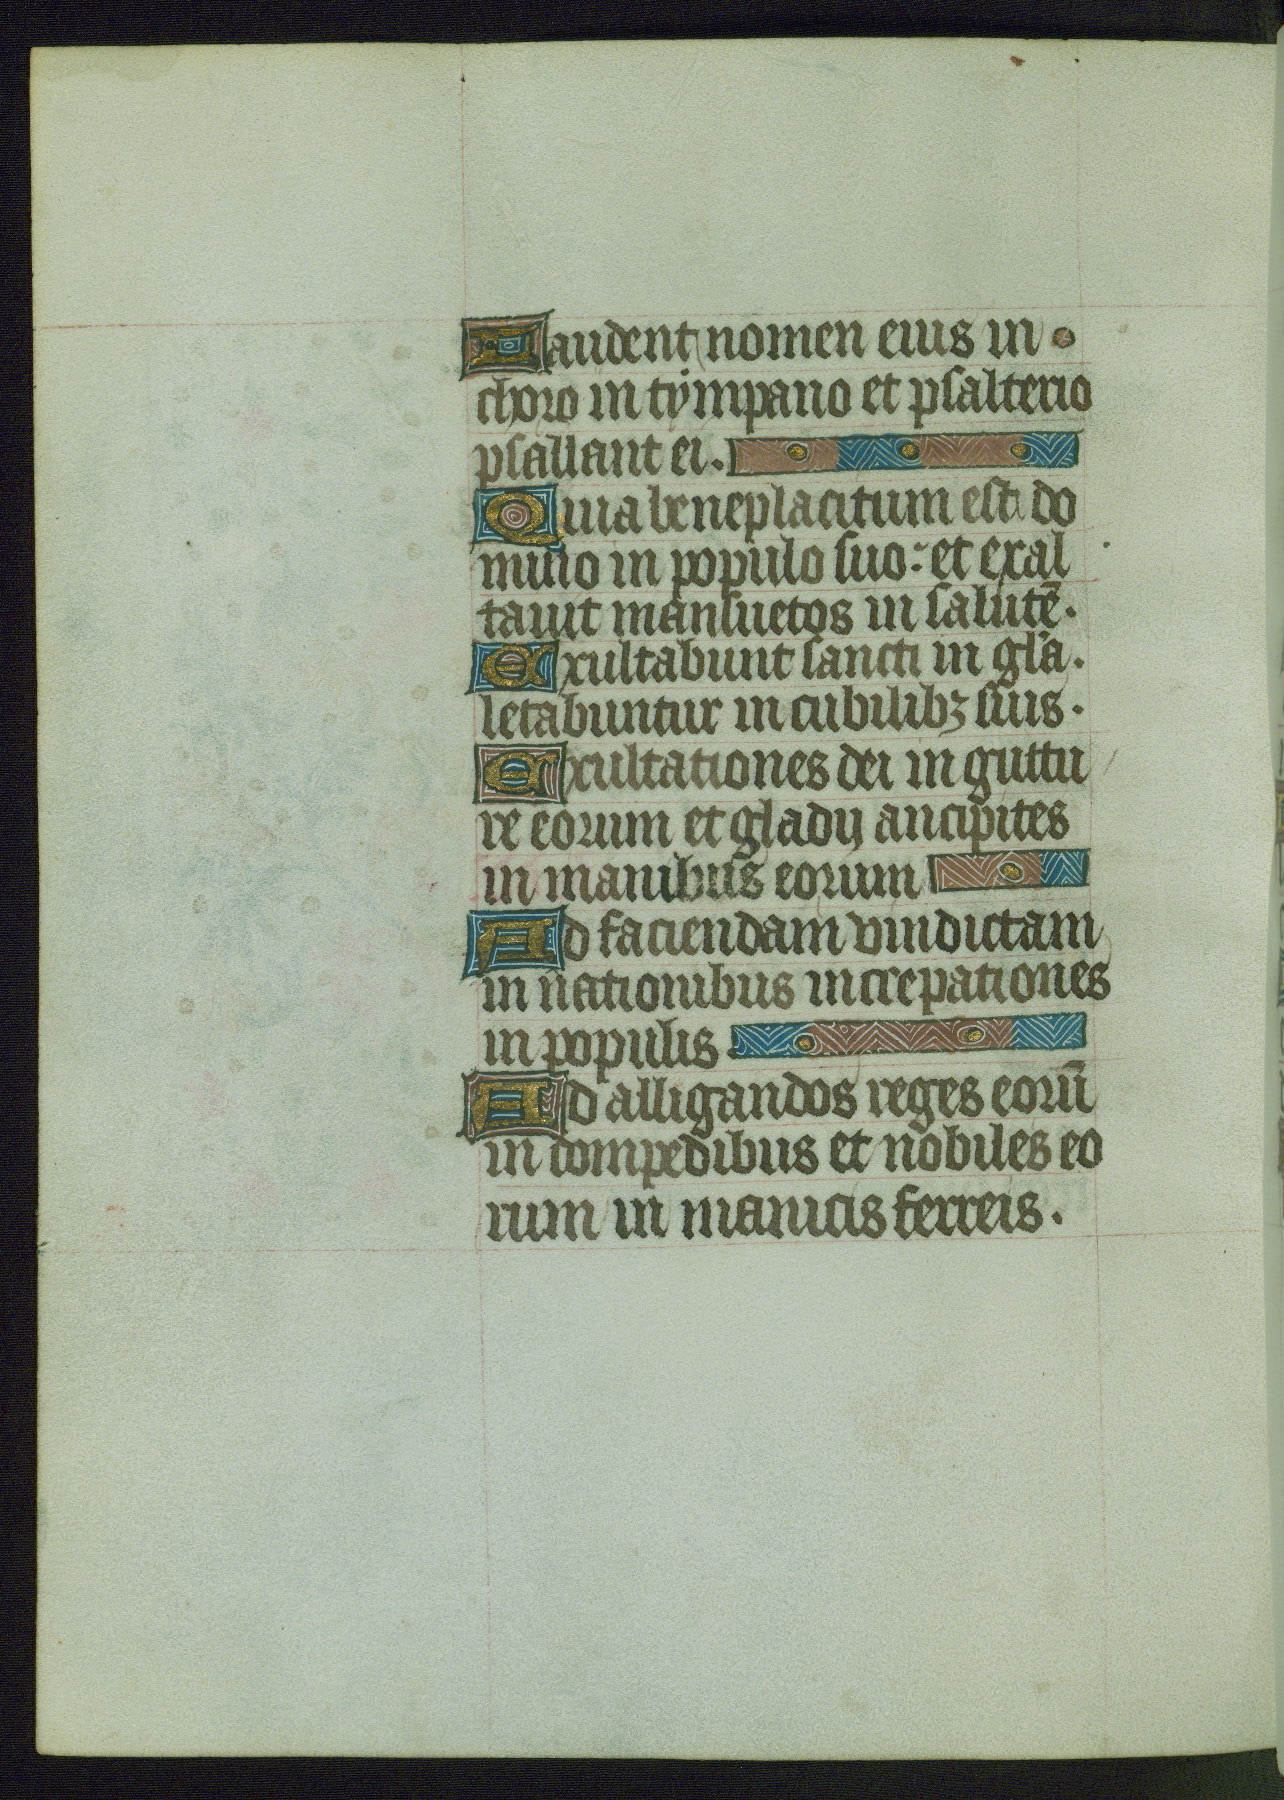 Laudent nomen eius in
choro in tẏmpano et psalterio
psallant ei.
Quia beneplacitum est do
mino in populo suo: et exal
tauit mansuetos in salutē.
Exultabunt sancti in gl'a.
letabuntur in cubilibꝫ suis.
Exultationes dei in guttu
re eorum et gladij ancipites
in manibus eorum
Ad faciendam vindictam
in nationibus increpationes
in populis.
Ad alligandos reges eorū
in compedibus et nobiles eo
rum in manicis ferreis.